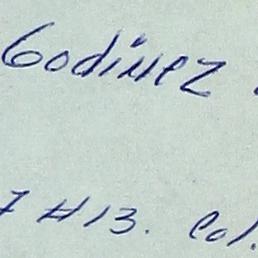 Godinez
7 #13. Col.